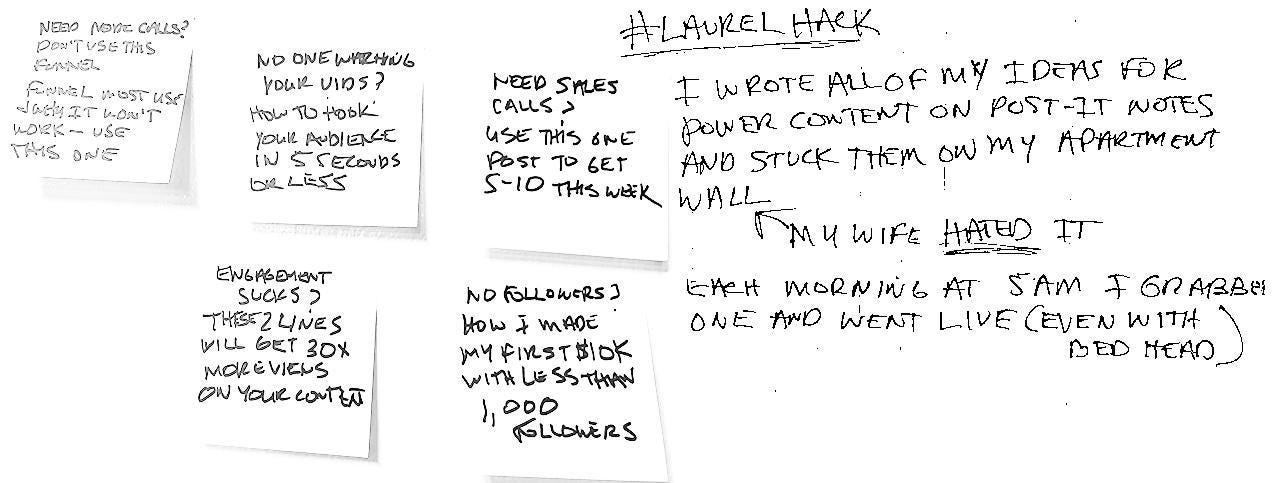 NEED MORE CALLS?
DON'T USE THIS
FUNNEL
FUNNEL MOST USE
IT WON'T
WORK - USE
THIS ONE
NO ONE WATCHING
YOUR VIDS?
HOW TO HOOK
YOUR AUDIENCE
IN 5 SECONDS
OR LESS
NEED SALES
CALLS?
USE THIS ONE
POST TO GET
5-10 THIS WEEK
ENGAGEMENT
SUCKS?
THESE 2 LINES
WILL GET 30X
MORE VIEWS
ON YOUR CONTENT
NO FOLLOWERS?
HOW I MADE
MY FIRST $10K
WITH LESS THAN
1,000
FOLLOWERS
#LAUREL HACK
I WROTE ALL OF MY IDEAS FOR
POWER CONTENT ON POST-IT NOTES
AND STUCK THEM ON MY APARTMENT
WALL
MY WIFE HATED IT
EACH MORNING AT 5AM I GRABBED
ONE AND WENT LIVE (EVEN WITH
BED HEAD)